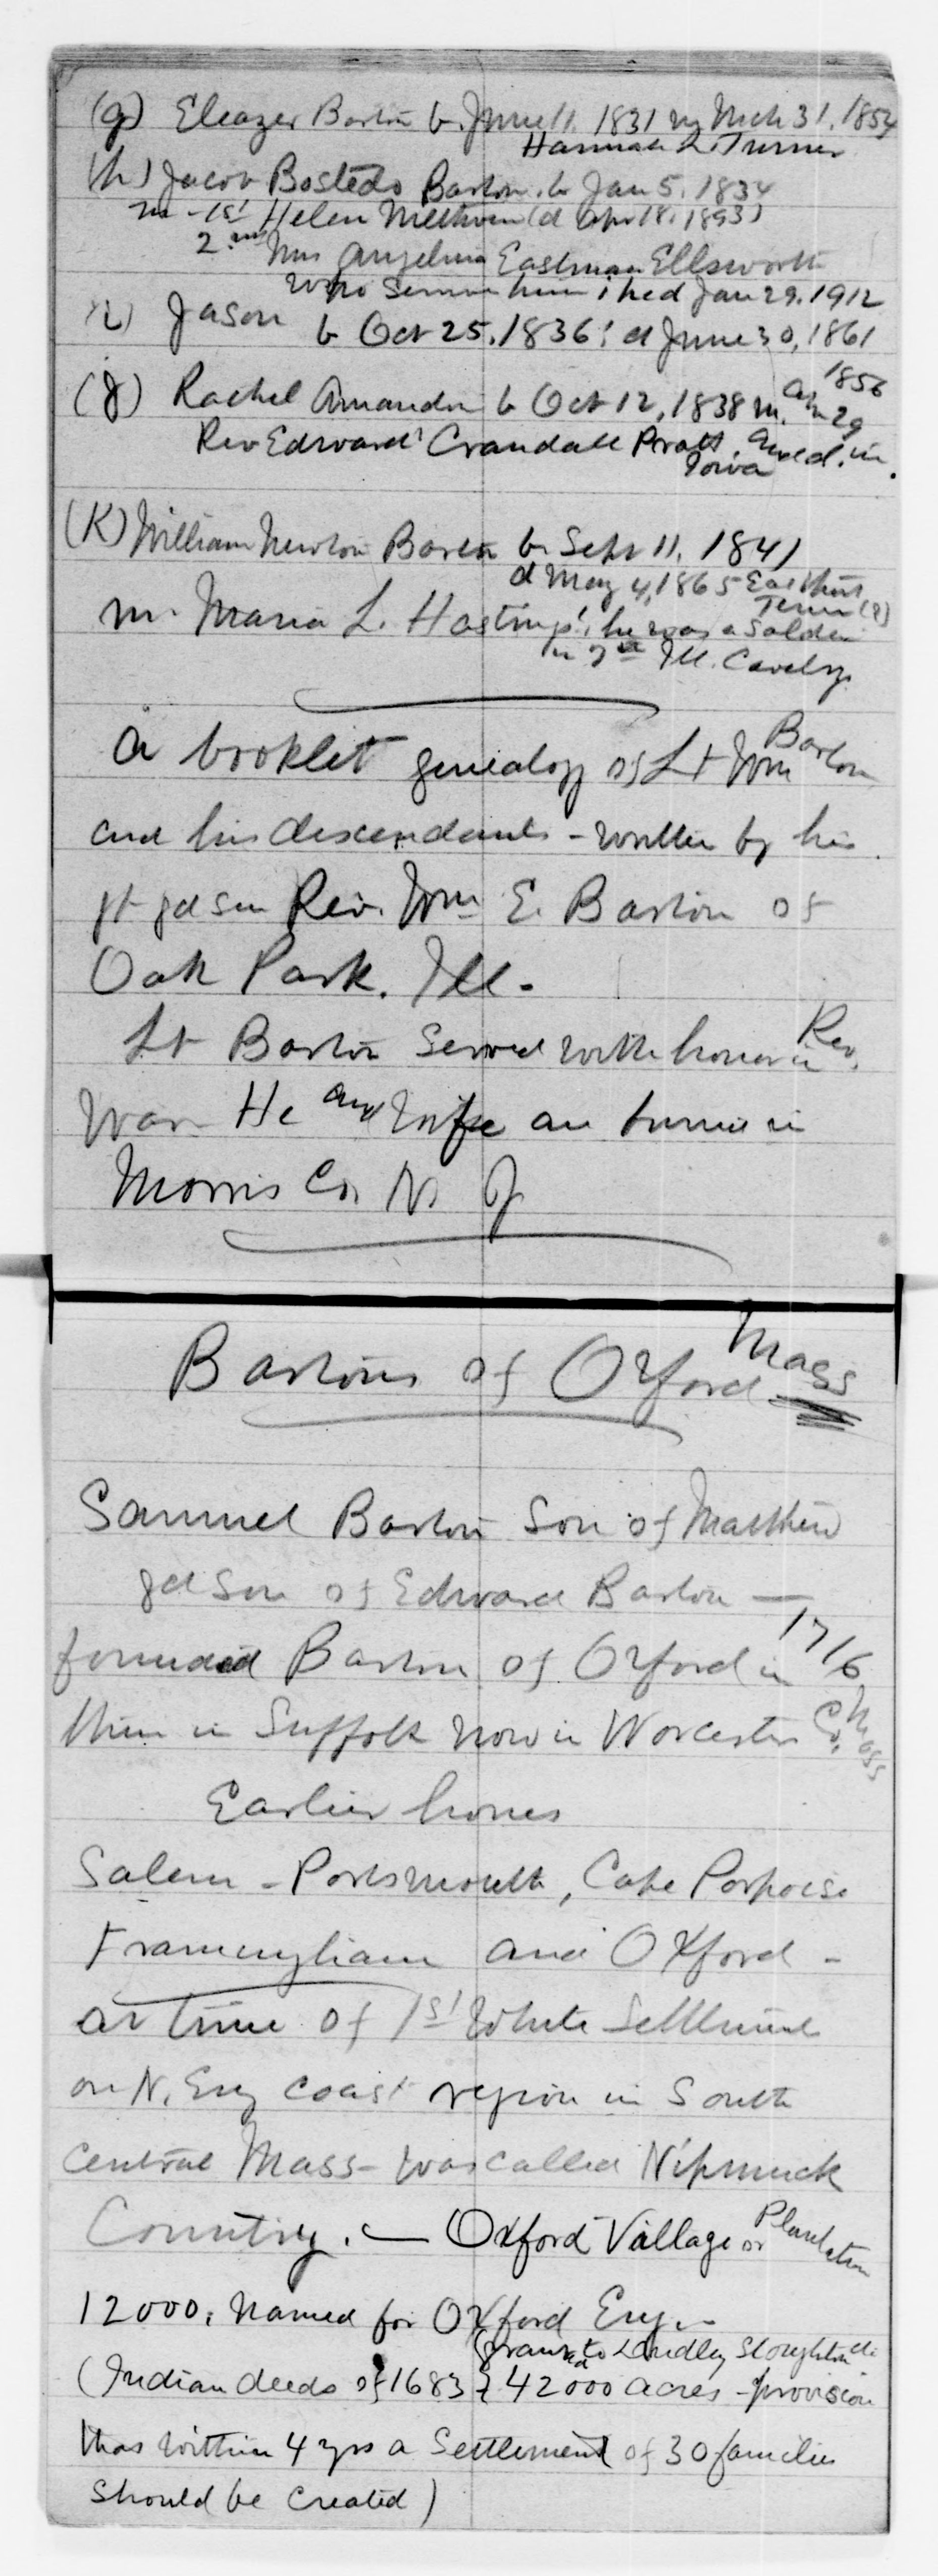 (g) Eleazer Barton b. June 11. 1831 m Mch 31. 1854
Hannah L. Turner
(h) Jacob Bostedo Barton. b Jan 5. 1834
m - 1st Helen Methven (d Apr 18. 1893)
2nd Mrs Angelina Eastman Ellsworth
who him; he d Jan 29. 1912
(i) Jason b Oct 25. 1836; d June 30, 1861
(j) Rachel Amanda b Oct 12, 1838 m. 29 1856
Rev Edward Crandall Pratt. lived in
Iowa
(K) William Newton Barton b Sept 11. 1841
d May 4, 1865 Eastport
Tenn (?)
m. Maria L. Hastings; he was a Soldier
in 7th Ill. Cavalry.
A booklet genealogy of Lt Wm Barton
and his descendants - written by his
gt gd son Rev. Wm E. Barton of
Oak Park. Ill.
Lt Barton served with honor in Rev.
War. He and Wife are buried in
Morris Co. N J
Bartons of Oxford Mass
Samuel Barton Son of Matthew
gd son of Edward Barton —
founded Barton of Oxford in 1716
then in Suffolk now in Worcester Co, Mass
Earlier homes
Salem - Portsmouth, Cape Porpoise
Framingham and Oxford -
at time of 1st White Settlement
on N. Eng coast region in South
Central Mass - was called Nipmuck
Country. — Oxford Village or Plantation
12000. named for Oxford Eng -
(granted to Dudley Stoughton etc
(Indian deeds of 1683 } 42000 acres - provision
that within 4 yrs a Settlement of 30 families
should be created)